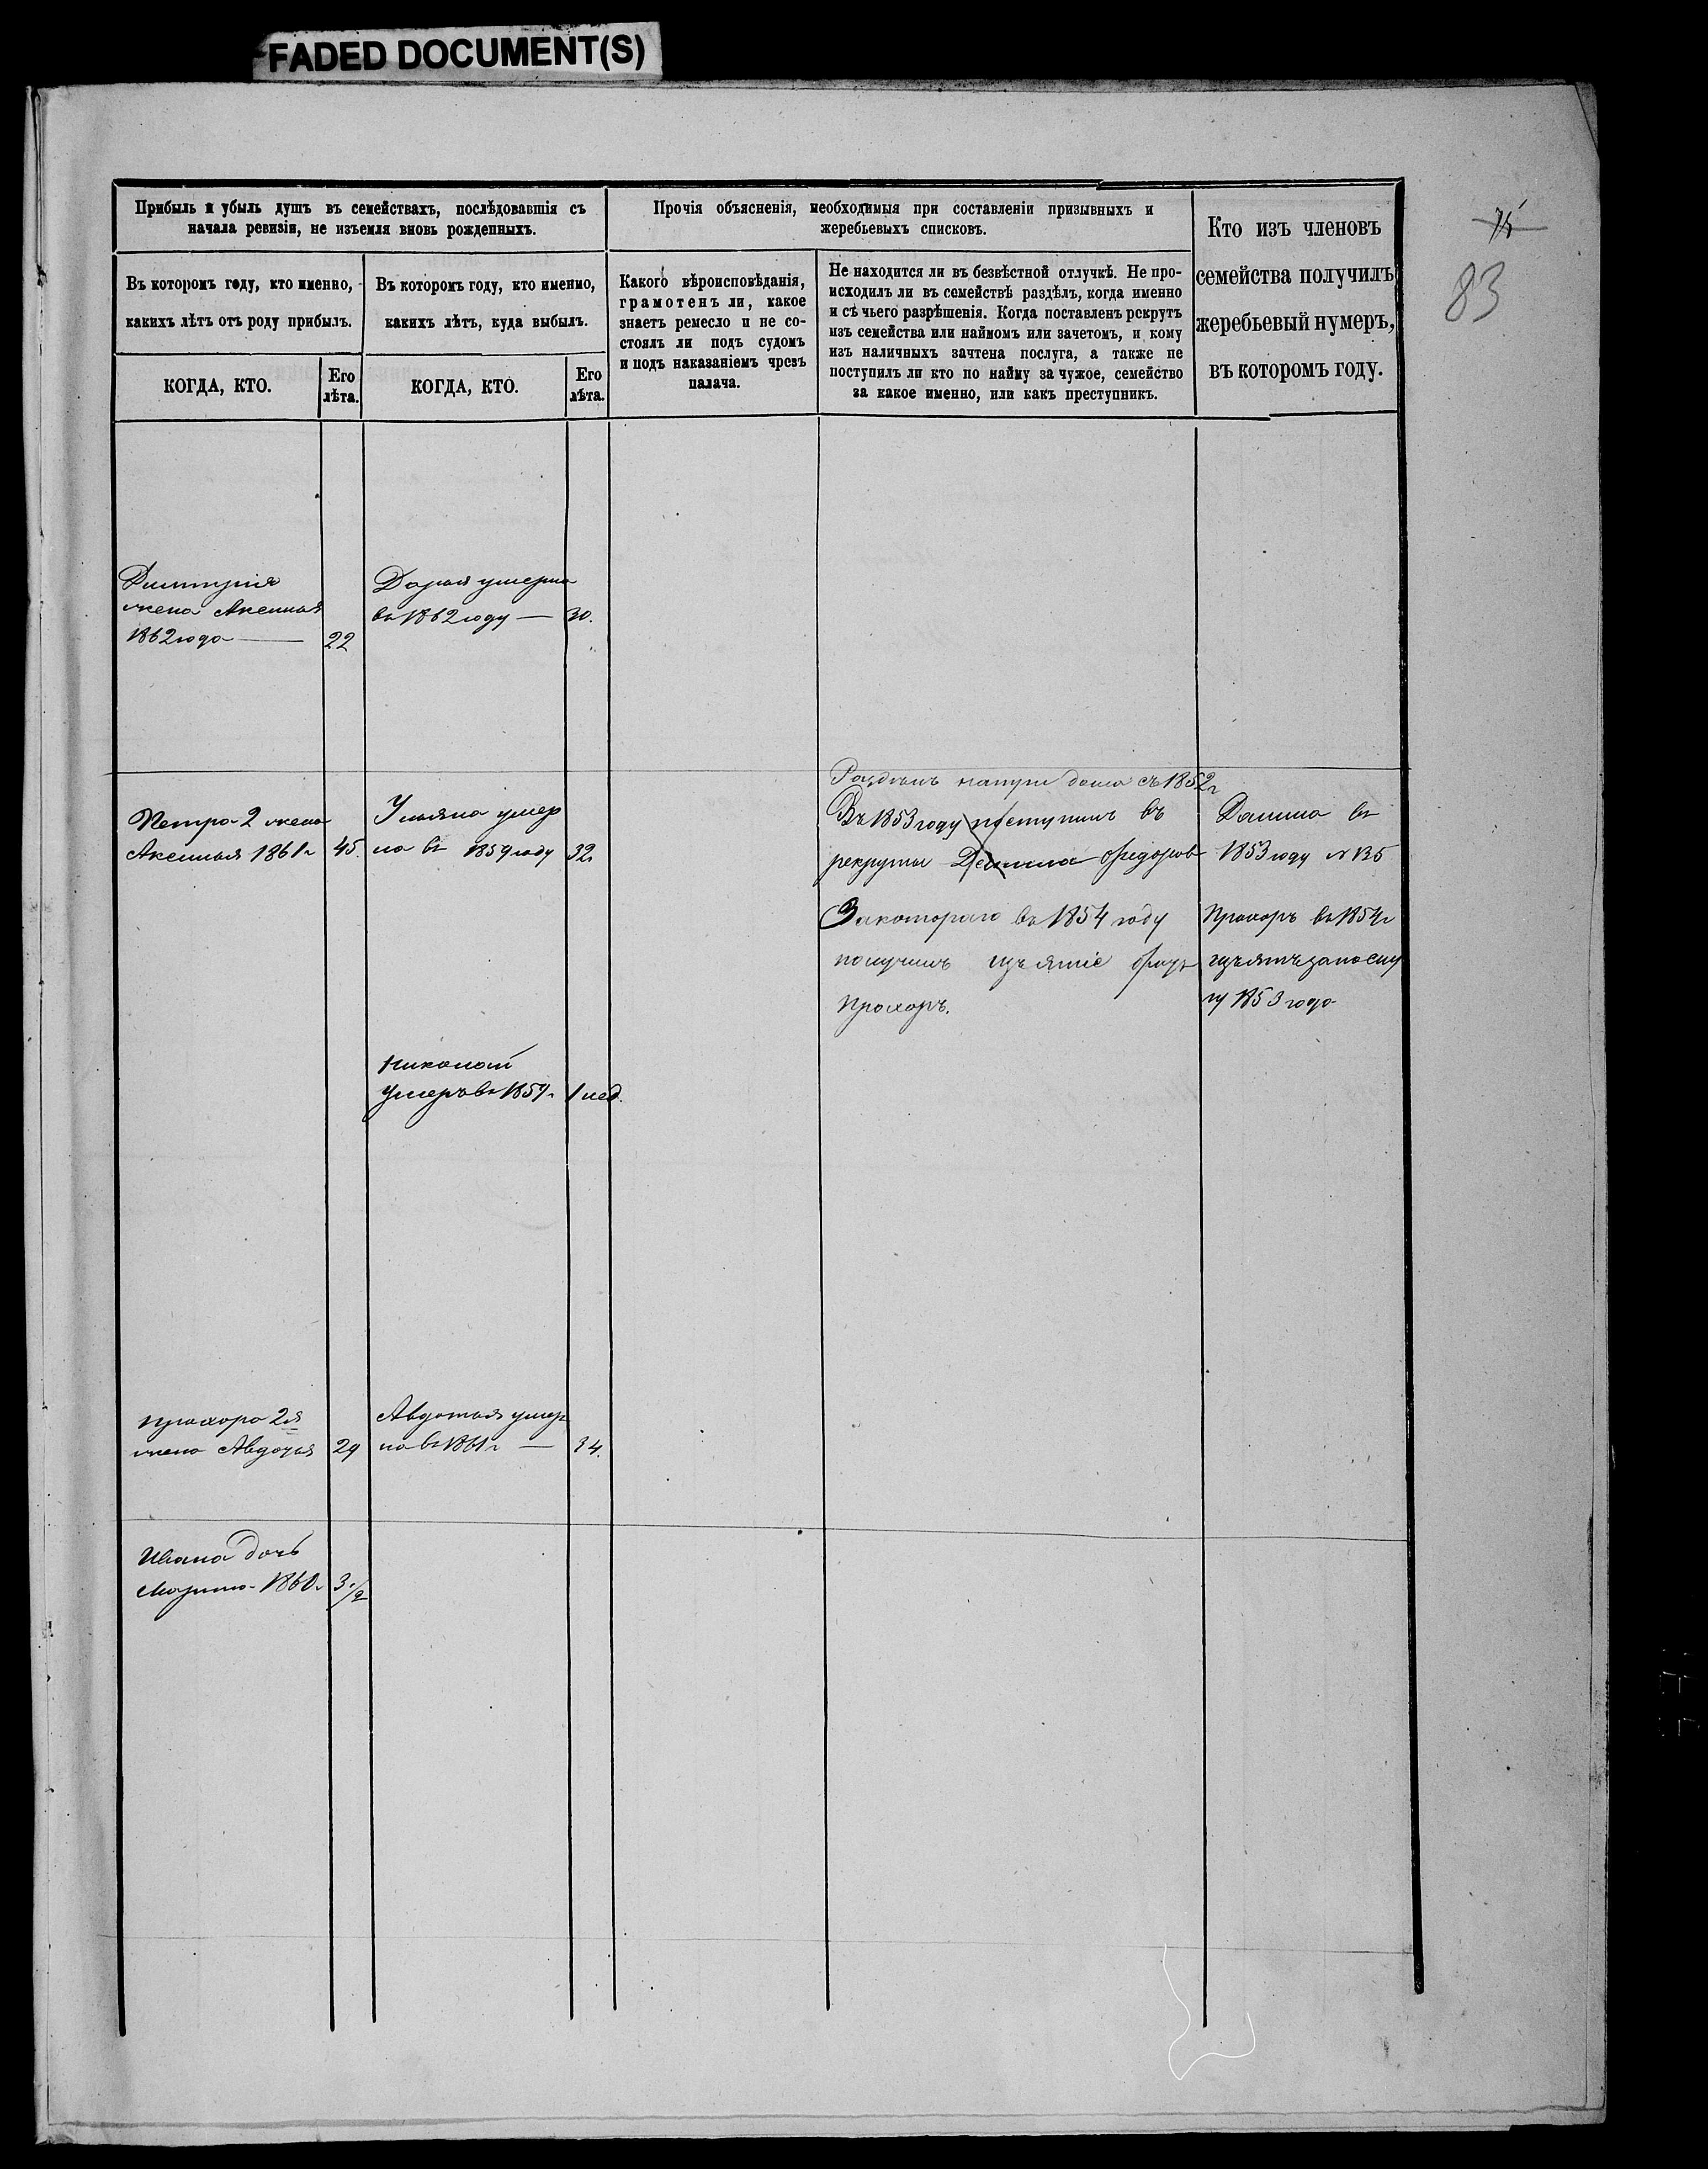 FADED DOCUMENT(S)
75
83
Прибыль и убыль душъ въ семействахъ, послѣдовавшія съ
начала ревизіи, не изъемля вновь рожденныхъ.
Въ которомъ году, кто именно,
какихъ лѣтъ отъ роду прибылъ.
КОГДА, КТО.
Его
лѣта.
Въ которомъ году, кто именно,
какихъ лѣтъ, куда выбылъ.
КОГДА, КТО.
Его
лѣта.
Прочія объясненія, необходимыя при составленіи призывныхъ и
жеребьевыхъ списковъ.
Какого вѣроисповѣданія,
грамотенъ ли, какое
знаетъ ремесло и не со-
стоялъ ли подъ судомъ
и подъ наказаніемъ чрезъ
палача.
Не находится ли въ безвѣстной отлучкѣ. Не про-
исходилъ ли въ семействѣ раздѣлъ, когда именно
и съ чьего разрѣшенія. Когда поставленъ рекрутъ
изъ семейства или наймомъ или зачетомъ, и кому
изъ наличныхъ зачтена послуга, а также не
поступилъ ли кто по найму за чужое, семейство
за какое именно, или какъ преступникъ.
Кто изъ членовъ
семейства получилъ
жеребьевый нумеръ,
въ которомъ году.
Дмитрія
жена Аксинья
1862 года — 22
Дарья умерла
въ 1862 году — 30.
Петра 2 жена
Аксинья 1861 г 45.
Ульяна умер
ла въ 1859 году 32
Раздѣлъ на три дома съ 1852 г
Въ 1853 году поступилъ въ
рекруты Данила Федоровъ
За котораго въ 1854 году
получилъ изъятіе братъ
Прохоръ.
Данила въ
1853 году № 135
Прохоръ въ 1854 г
изъятъ за послу
гу 1853 года
Николай
умеръ въ 1859 г 1 нед.
Прохора 2я
жена Авдотья 29
Авдотья умер
ла въ 1861 г — 34.
Ивана дочь
Марина 1860 г 3 1/2